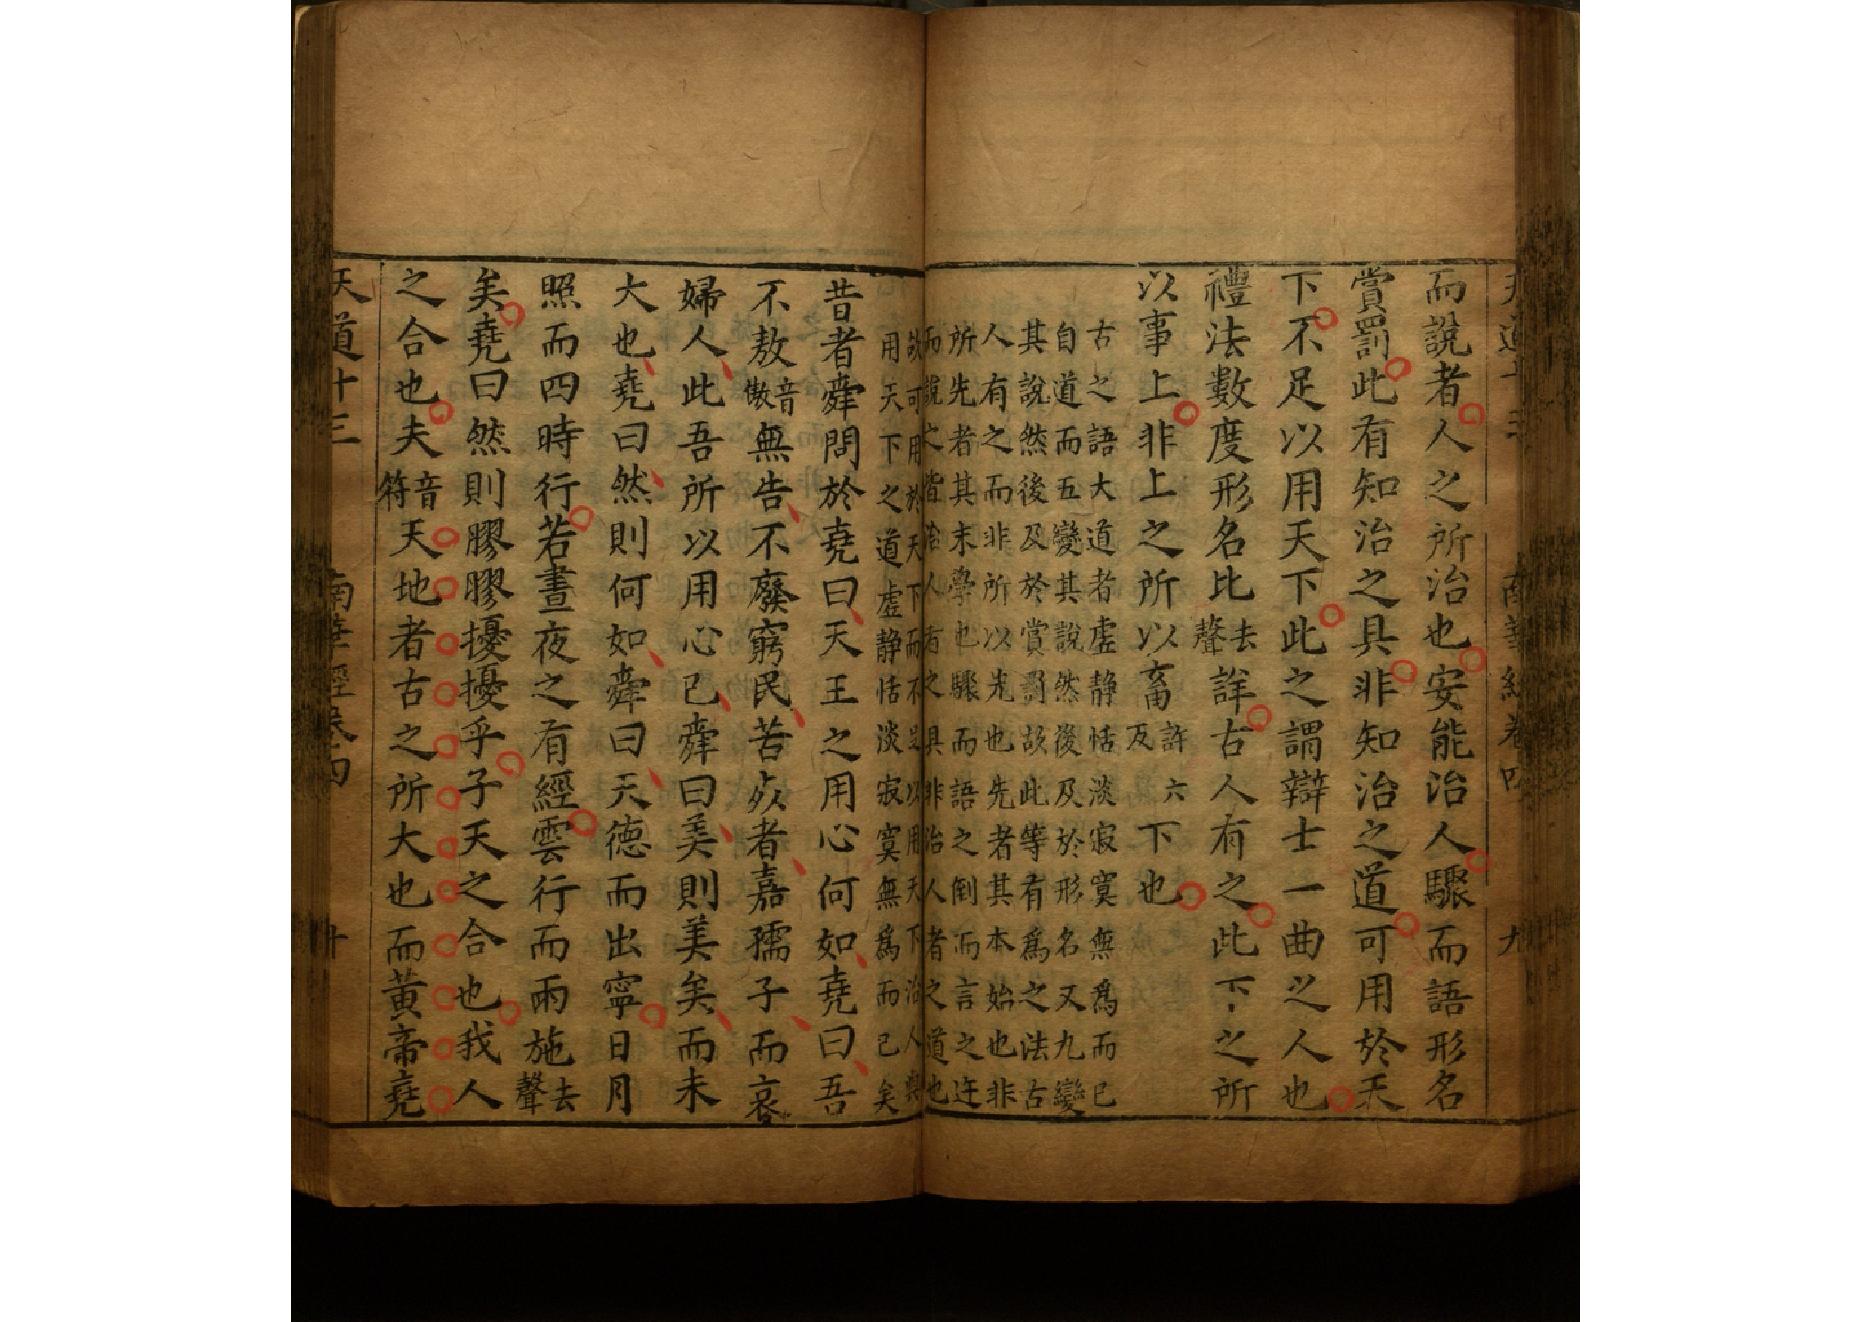 天道十三 南華經卷四 九
而說者人之所治也安能治人驟而語形名
賞罰此有知治之具非知治之道可用於天
下不足以用天下此之謂辯士一曲之人也
禮法數度形名比去聲詳古人有之此下之所
以事上非上之所以畜許六反下也
古之語大道者虛静恬淡寂寞無爲而已
自道而五變其說然後及於形名又九變
其說然後及於賞罰故此等有爲之法古
人有之而非所以先也先者其本始也非
所先者其末學也驟而語之倒而言之迕
而說之皆治人者之具非治人者之道也
故可用於天下而不足以用天下治人與
用天下之道虛静恬淡寂寞無爲而已矣
昔者舜問於堯曰天王之用心何如堯曰吾
不敖音傲無告不廢窮民苦死者嘉孺子而哀
婦人此吾所以用心已舜曰美則美矣而未
大也堯曰然則何如舜曰天德而出寧日月
照而四時行若晝夜之有經雲行而雨施去聲
矣堯曰然則膠膠擾擾乎子天之合也我人
之合也夫音符天地者古之所大也而黄帝堯
天道十三 南華經卷四 十